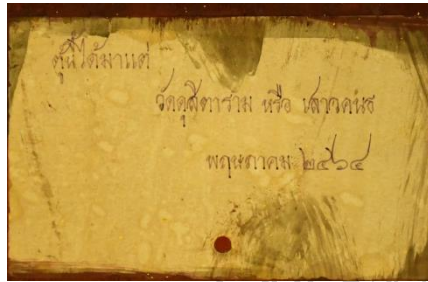 ตู้นี้ได้มาแต่
วัดดุสิตาราม หรือ เสาวคนธ
พฤษภาคม ๒๔๖๔